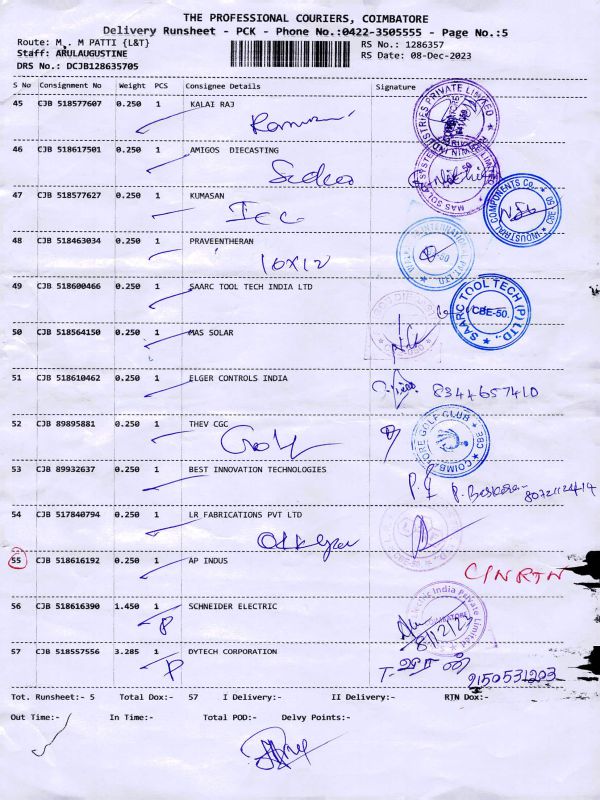 THE PROFESSIONAL COURIERS, COIMBATORE
Delivery Runsheet - PCK - Phone No.:0422-3505555 - Page No.:5
Route: M. M PATTI {L&T}
RS No.: 1286357
Staff: ARULAUGUSTINE
RS Date: 08-Dec-2023
DRS No.: DCJB128635705
S No Consignment No Weight PCS Consignee Details Signature
45 CJB 518577607 0.250 1 KALAI RAJ
46 CJB 518617501 0.250 1 AMIGOS DIECASTING
47 CJB 518577627 0.250 1 KUMASAN
INDUSTRIAL COMPONENTS Co., CBE 50
48 CJB 518463034 0.250 1 PRAVEENTHERAN
10X12
49 CJB 518600466 0.250 1 SAARC TOOL TECH INDIA LTD
SAARC TOOL TECH (P) LTD., CBE-50.
50 CJB 518564150 0.250 1 MAS SOLAR
51 CJB 518610462 0.250 1 ELGER CONTROLS INDIA
8344657410
52 CJB 89895881 0.250 1 THEV CGC
Golf
COIMBATORE GOLF CLUB CBE
53 CJB 89932637 0.250 1 BEST INNOVATION TECHNOLOGIES
54 CJB 517840794 0.250 1 LR FABRICATIONS PVT LTD
55 CJB 518616192 0.250 1 AP INDUS
C/N RTN
56 CJB 518616390 1.450 1 SCHNEIDER ELECTRIC
P
8/12/23
57 CJB 518557556 3.285 1 DYTECH CORPORATION
P
2150531203
Tot. Runsheet:- 5 Total Dox:- 57 I Delivery:- II Delivery:- RTN Dox:-
Out Time:- In Time:- Total POD:- Delvy Points:-